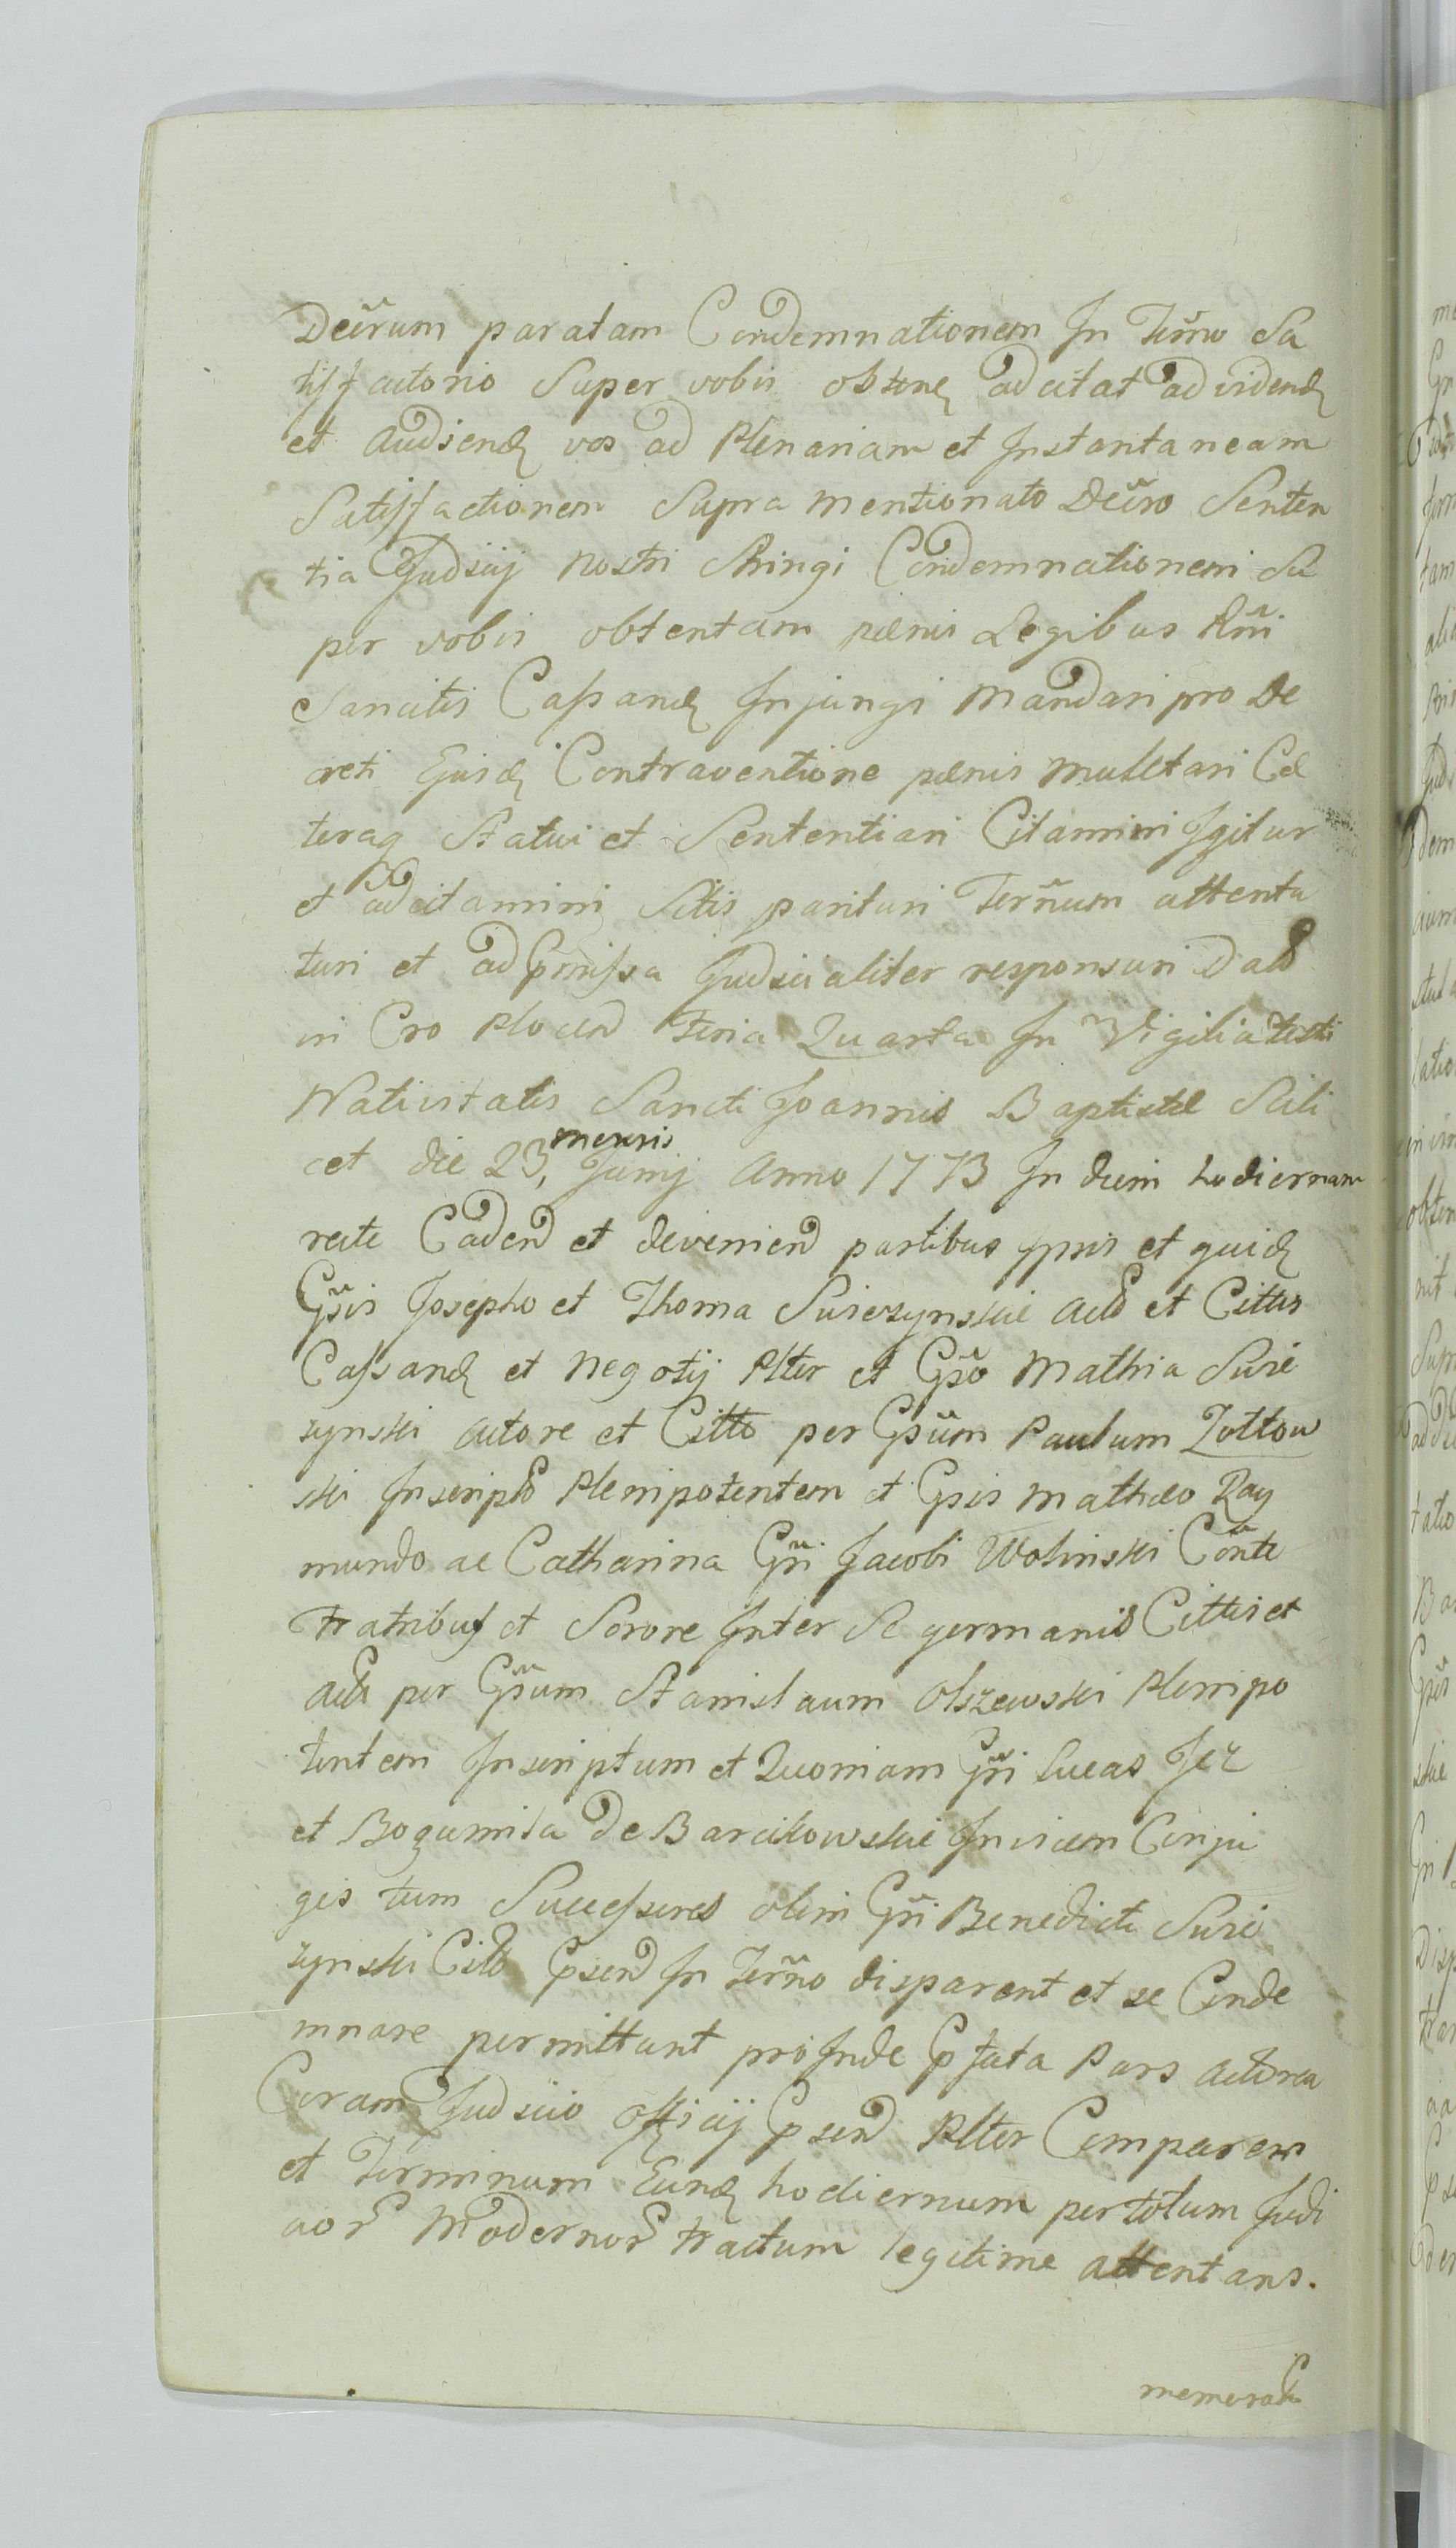 Decrum paratam Condemnationem In Termo Sa
tisfactorio Super vobis obtine adcitat ad vidend
et audiend vos ad Plenariam et Instantaneam
Satisfactionem Supra mentionato Decro Senten
tia Judicij nostri Stringi Condemnationem Su
per vobis obtentam pænis Legibus Rgni
Sancitis Cassand Injungi Mandari pro De
creti Eiusd Contraventione pænis mulctari Cæ
teraq Statui et Sententiari Citamini Igitur
et adcitamini Sitis parituri Termum attenta
turi et ad pmissa Judicialiter responsuri Dat
in Cro Plocen Feria Quarta In Vigilia Festi
Nativitatis Sancti Joannis Baptistæ Scili
cet die 23, mensis Junij Anno 1773 In diem hodiernam
recte Caden et devenien partibus ipsis et quid
Gsis Josepho et Thoma Suierzynskie act et Cittis
Cassand et negotij Pltr et Gso Mathia Suie
rzynski actore et Citto per Gsum Paulum Zottow
ski Inscript Plenipotentem et Gsis Mathæo Ray
mundo ac Catharina Gsi Jacobi Wolinski Conte
Fratribus et Sorore Inter Se germanis Cittis et
act per Gsum Stanislaum Olszewski Plenipo
tentem Inscriptum et Quoniam Gsi Lucas Jez
et Bogumila de Barcikowskie Invicem Conju
ges tum Successores olim Gsi Benedicti Suie
rzynski Cit psen In Termo disparent et se Conde
mnare permittunt proinde pfata Pars actorea
Coram Judicio officij psen Plter Comparen
et Terminum Eund hodiernum per totum Judi
cior modernor tractum legitime attentans.
memorat